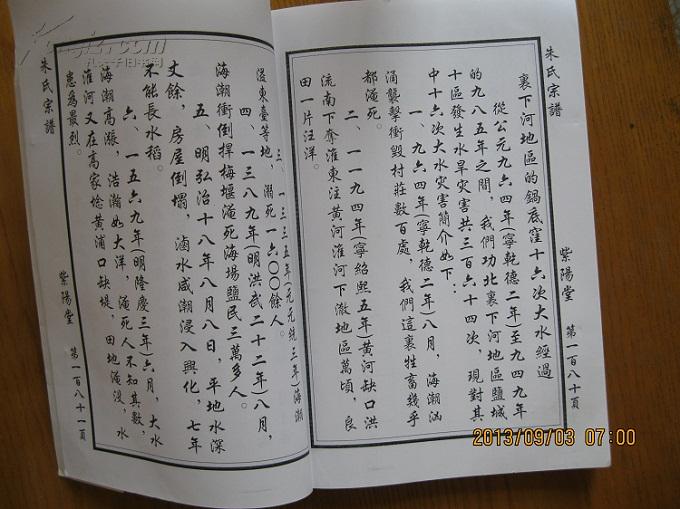 朱氏宗譜
裏下河地區的鍋底窪十六次大水經過
從公元九六四年(寧乾德二年)至一九四九年
的九八五年之間，我們功北裏下河地區鹽城
十區發生水旱灾害共三百六十四次，現對其
中十六次大水灾害簡介如下：
一、九六四年(寧乾德二年)八月，海潮汹
涌襲擊衝毁村莊數百處，我們這裏牲畜幾乎
都淹死。
二、一一九四年(寧紹熙五年)黄河缺口洪
流南下奪淮東注黄河淮河下澈地區萬頃，良
田一片汪洋。
紫陽堂
第一百八十頁
三、一三三五年(元元統三年)海潮
浸東臺等地，溺死一六〇〇餘人。
四、一三八九年(明洪武二十二年)八月，
海潮衝倒捍梅堰淹死海場鹽民三萬多人。
五、明弘治十八年八月八日，平地水深
丈餘，房屋倒塌，滷水咸潮浸入興化，七年
不能長水稻。
六、一五六九年(明隆慶三年)六月，大水
海潮高漲，浩瀚如大洋，淹死人不知其數，
淮河又在高家埝黄浦口缺堤，田地淹没，水
患為最烈。
朱氏宗譜
紫陽堂
第一百八十一頁
2013/09/03 07:00